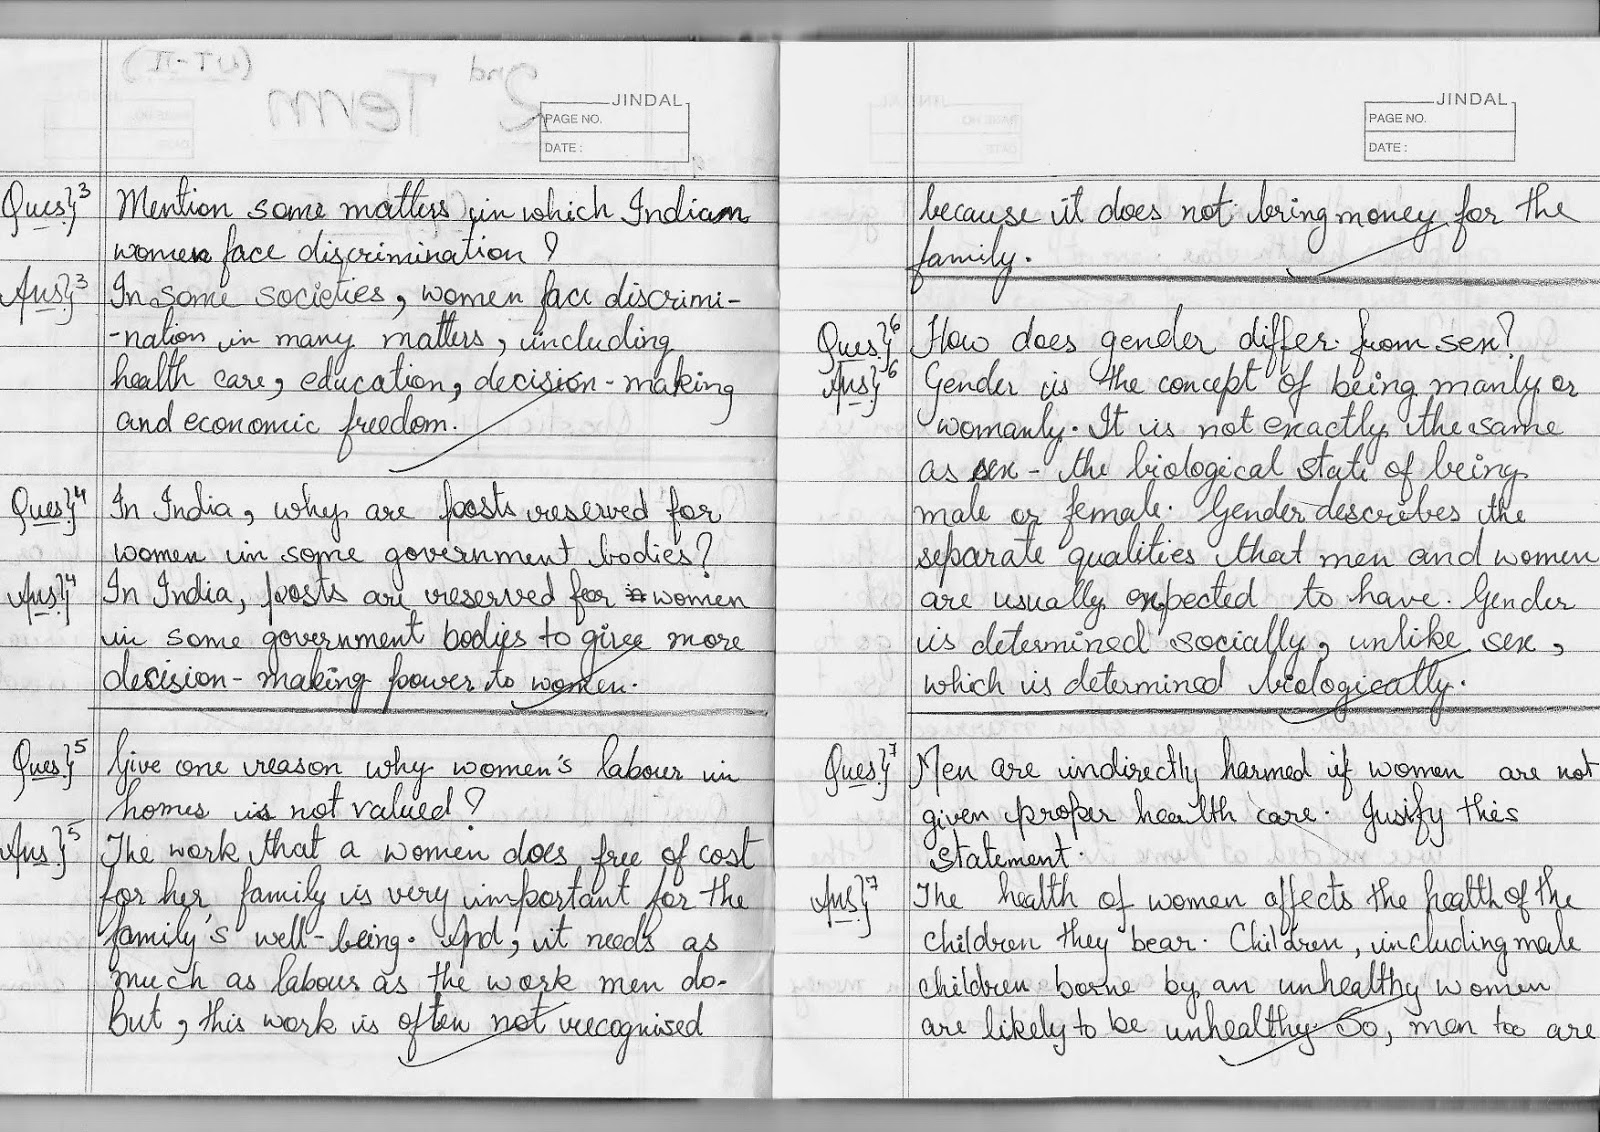 (UT-II)
2nd Term
JINDAL
PAGE NO.
DATE :
Ques}3 Mention some matters in which Indian
women face discrimination ?
Ans}3 In some societies, women face discrimi-
-nation in many matters, including
health care, education, decision-making
and economic freedom.
Ques}4 In India, why are posts reserved for
women in some government bodies?
Ans}4 In India, posts are reserved for women
in some government bodies to give more
decision-making power to women.
Ques}5 Give one reason why women's labour in
homes is not valued ?
Ans}5 The work that a women does free of cost
for her family is very important for the
family's well-being. And, it needs as
much as labour as the work men do.
But, this work is often not recognised
JINDAL
PAGE NO.
DATE :
because it does not bring money for the
family.
Ques}6 How does gender differ from sex?
Ans}6 Gender is the concept of being manly or
womanly. It is not exactly the same
as sex - the biological state of being
male or female. Gender describes the
separate qualities that men and women
are usually expected to have. Gender
is determined socially, unlike sex,
which is determined biologically.
Ques}7 Men are indirectly harmed if women are not
given proper health care. Justify this
statement.
Ans}7 The health of women affects the health of the
children they bear. Children, including male
children borne by an unhealthy women
are likely to be unhealthy. So, men too are